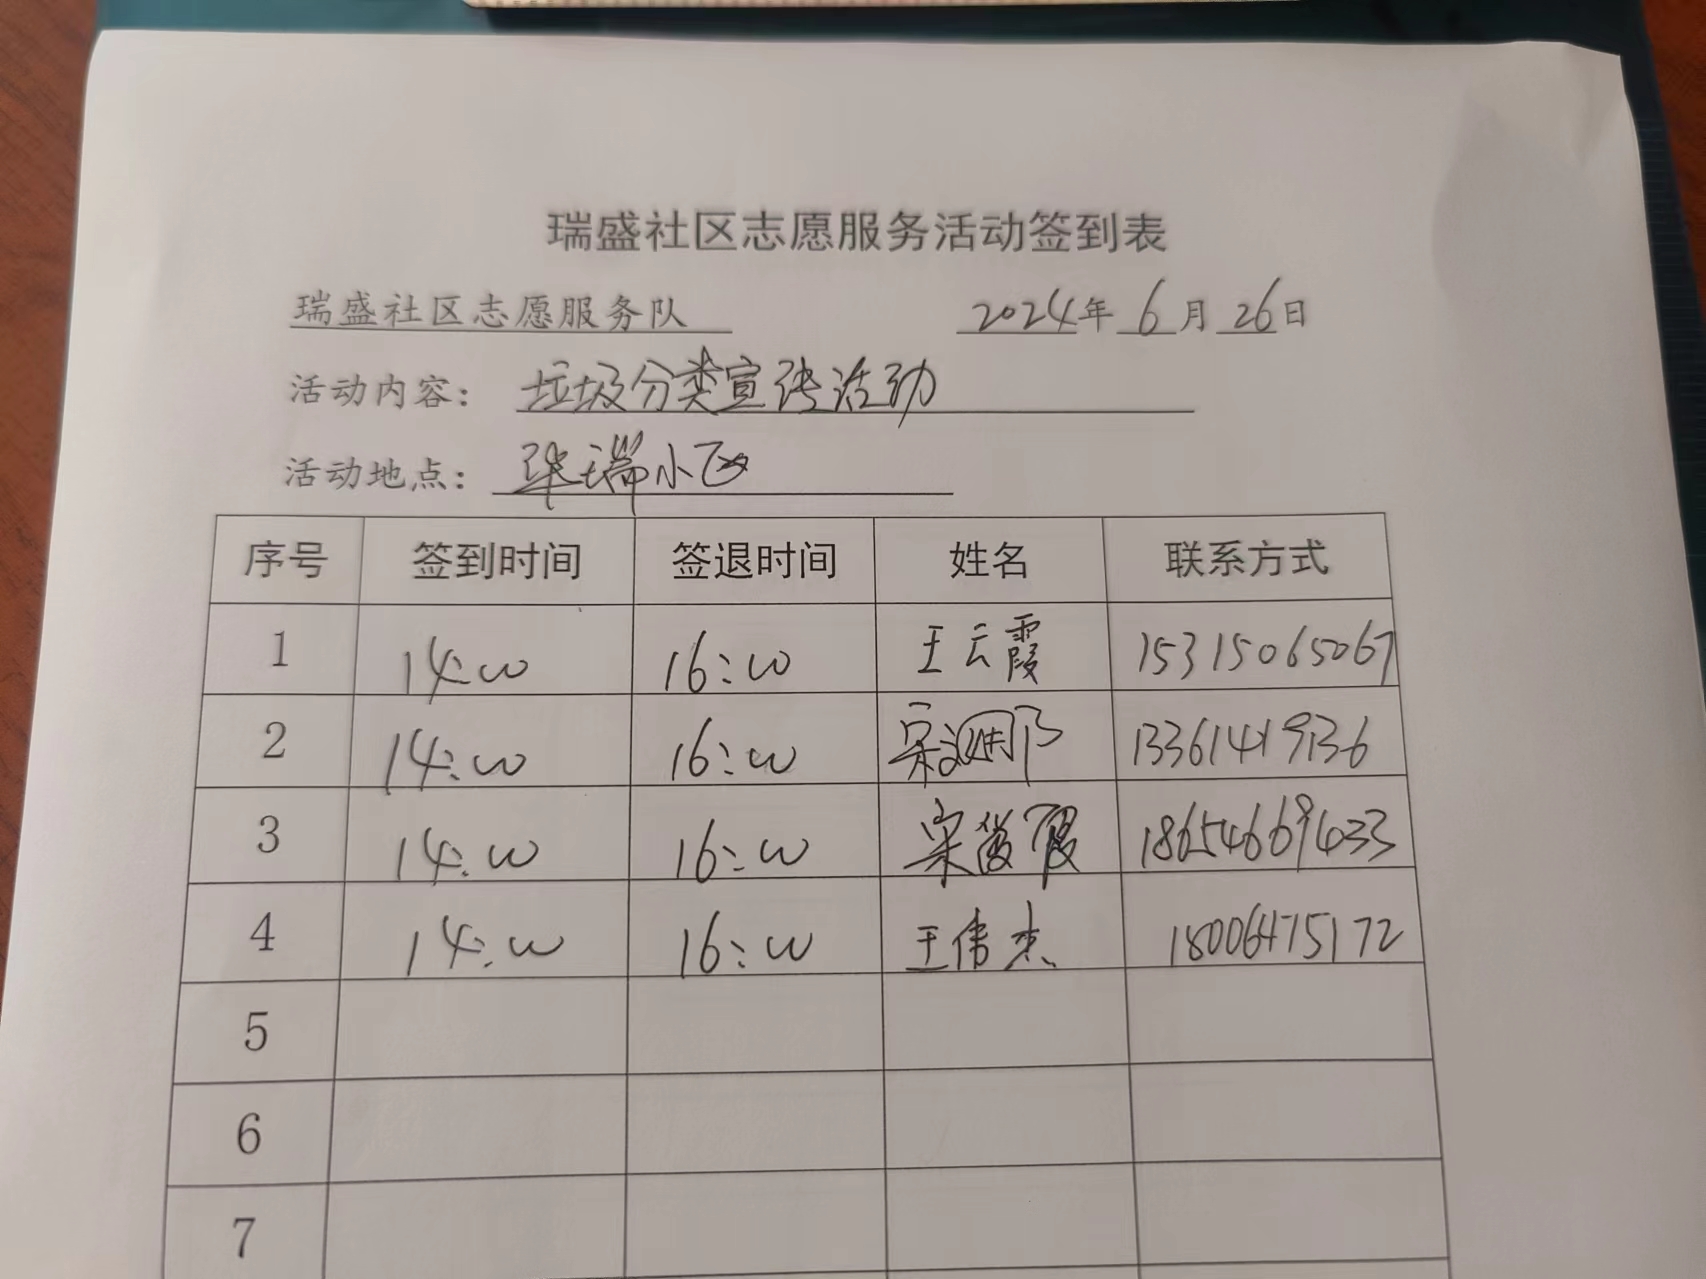 瑞盛社区志愿服务活动签到表
瑞盛社区志愿服务队 2024年 6月 26日
活动内容: 垃圾分类宣传活动
活动地点: 瑞小区
序号 签到时间 签退时间 姓名 联系方式
1 14:00 16:00 王云霞 15315065067
2 14:00 16:00 宋 13361419136
3 14:00 16:00 宋 霞 18654669433
4 14:00 16:00 王伟杰 18006475172
5
6
7